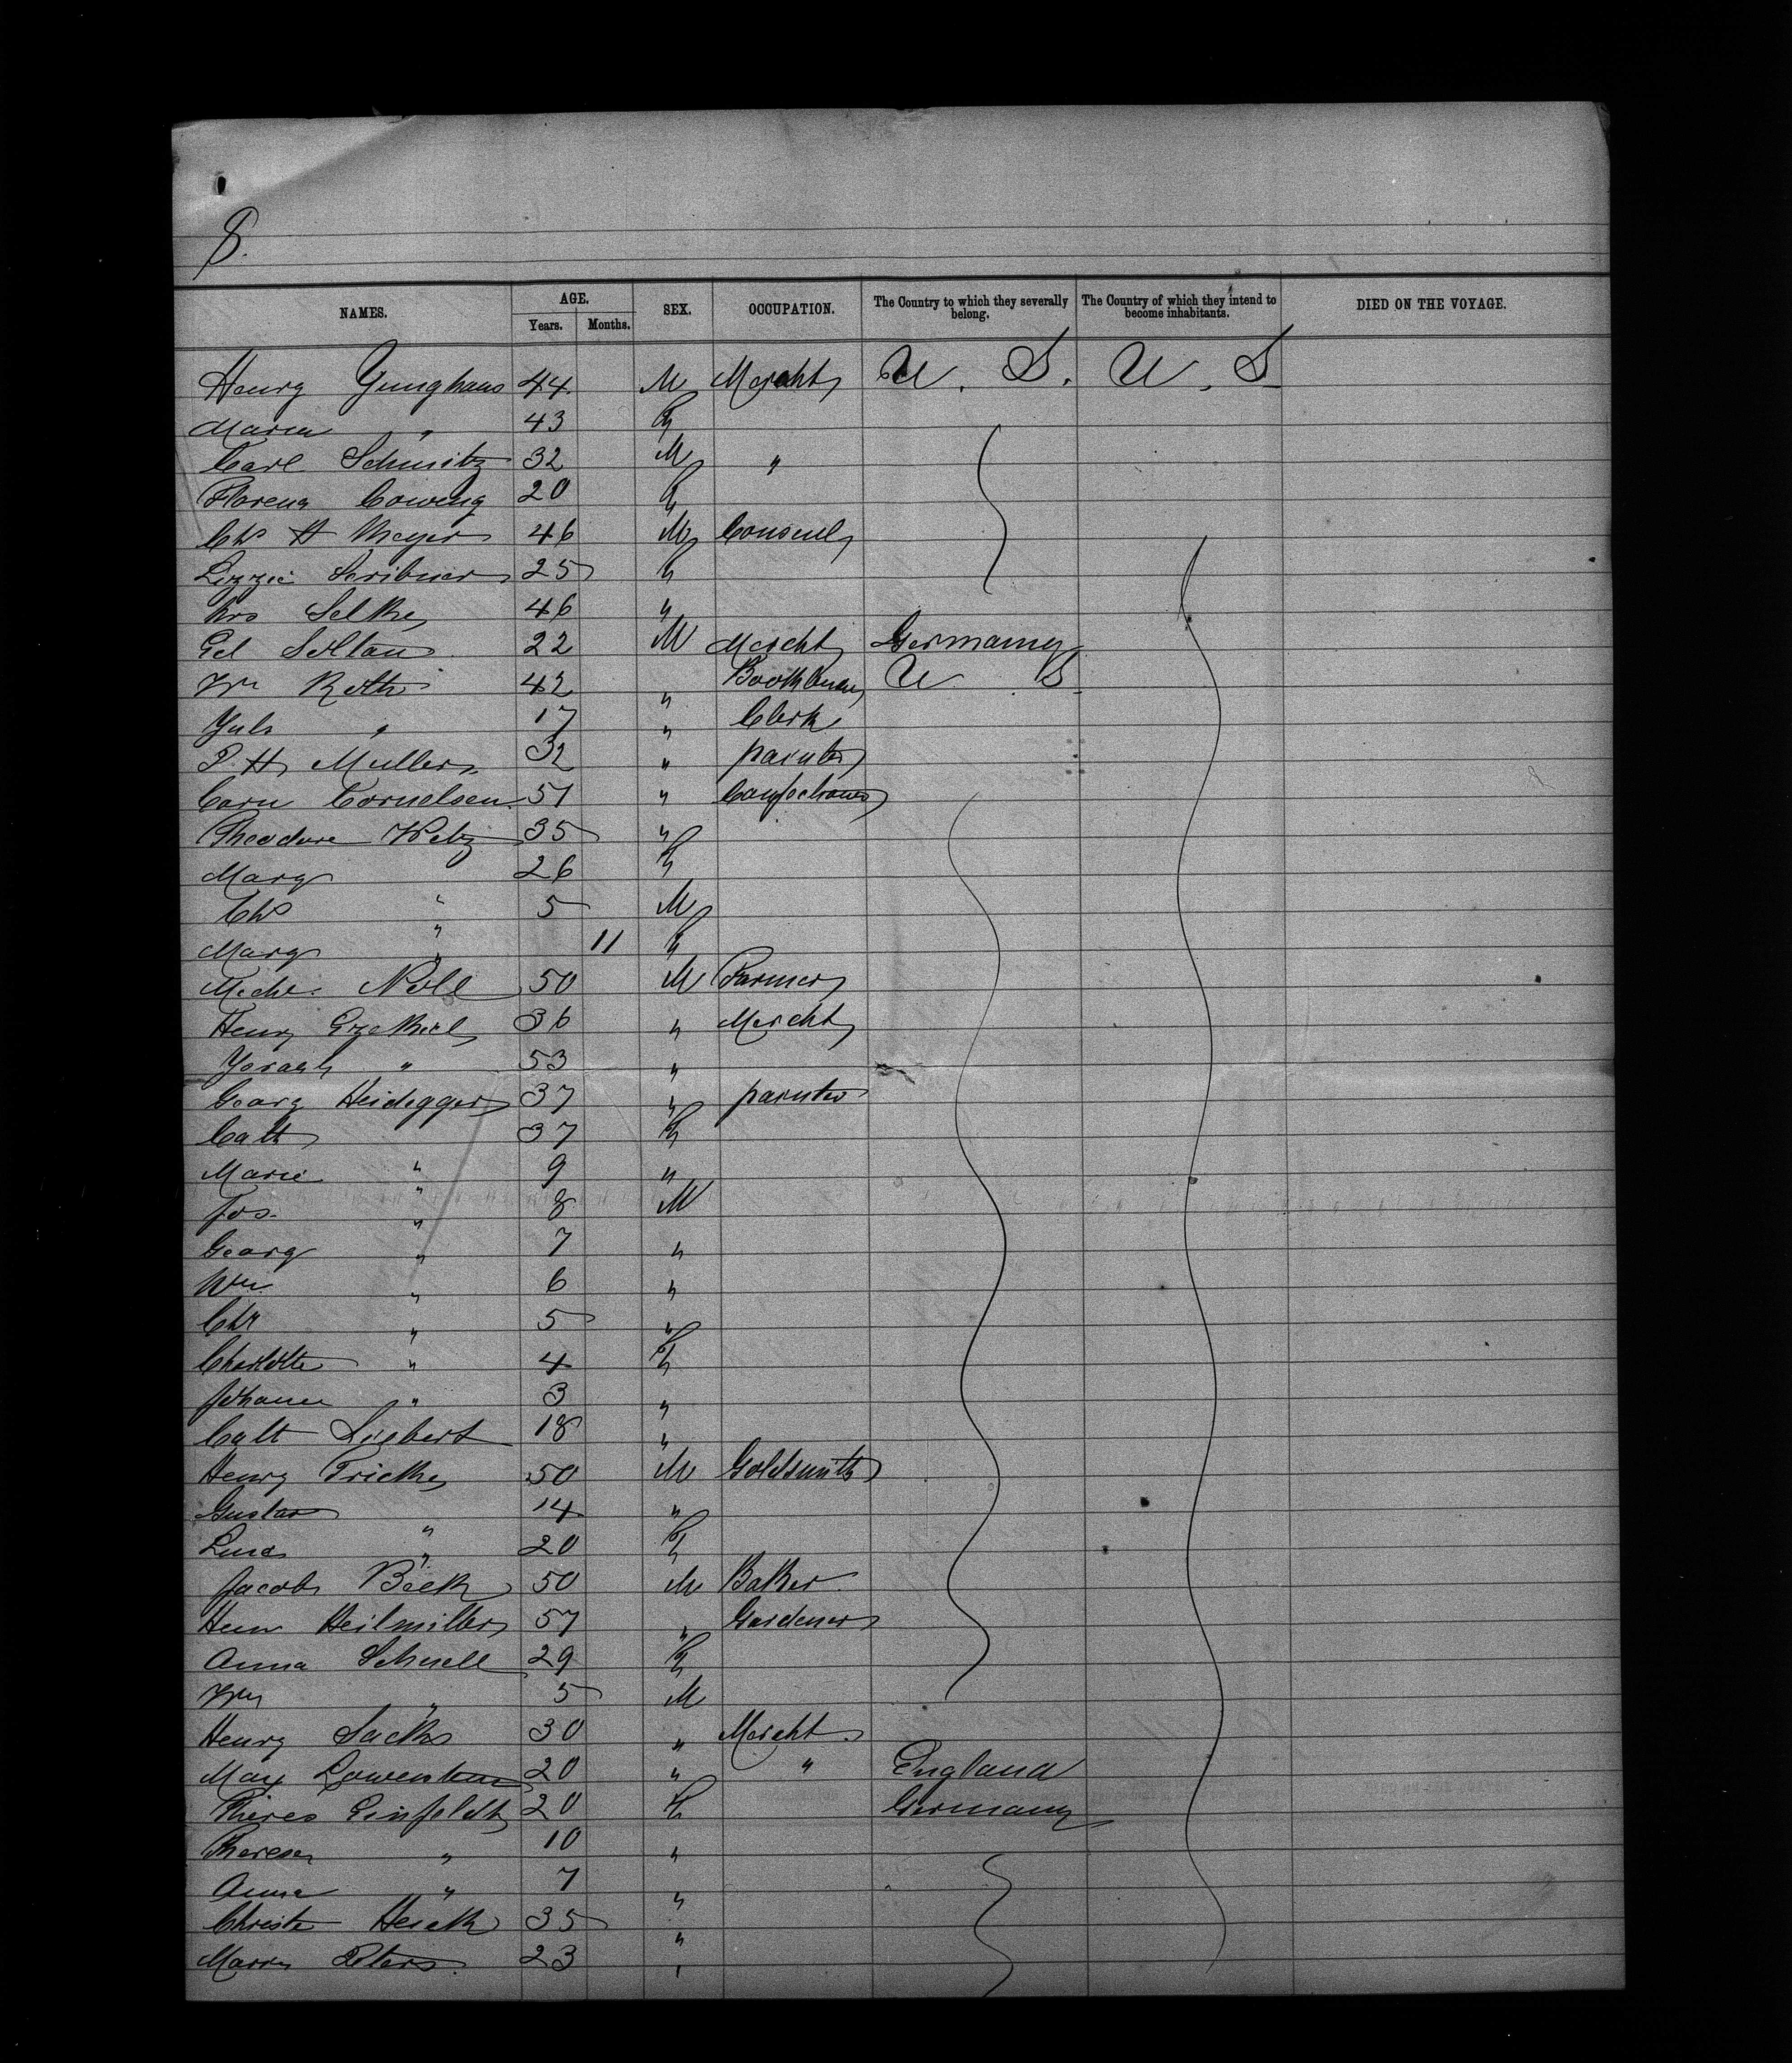 8.
NAMES. AGE. Years. Months. SEX. OCCUPATION. The Country to which they severally belong. The Country of which they intend to become inhabitants. DIED ON THE VOYAGE.
Henry Junghans 44 M Mercht U. S. U. S
Maria " 43 F
Carl Schmitz 32 M "
Cowing 20 F
Chs H Meyer 46 M Consul
Lizzie Scribner 25 F
Mrs Selke 46 "
Ed Soltau 22 M Mercht Germany
Wm Roth 42 " U S
Juls " 17 " Clerk
P. H. Muller 32 " painter
Cornelsen 51 "
Theodore Wetz 35 "
Marg " 26 F
Chs " 5 M
Marg " 11 F
Michl. Noll 50 M Farmer
Henry Ezekiel 36 " Mercht
" 53 "
Georg Heidegger 37 " painter
Cath " 37 F
Marie " 9 "
Jos. " 8 M
Georg " 7 "
Wm " 6 "
Chr " 5 "
Charlotte " 4 F
Johanna " 3 "
Cath Siebert 18 "
Henry Fricke 50 M Goldsmith
Gustav " 14 "
Lina " 20 F
Jacob Beck 50 M Baker
Heilmiller 57 " Gardener
Anna Schnell 29 F
Wm " 5 M
Henry Sacks 30 " Mercht
Max Lowenstein 20 " " England
Theres Einfeldt 20 F Germany
Therese " 10 "
Anna " 7 "
35 "
Peters 23 "